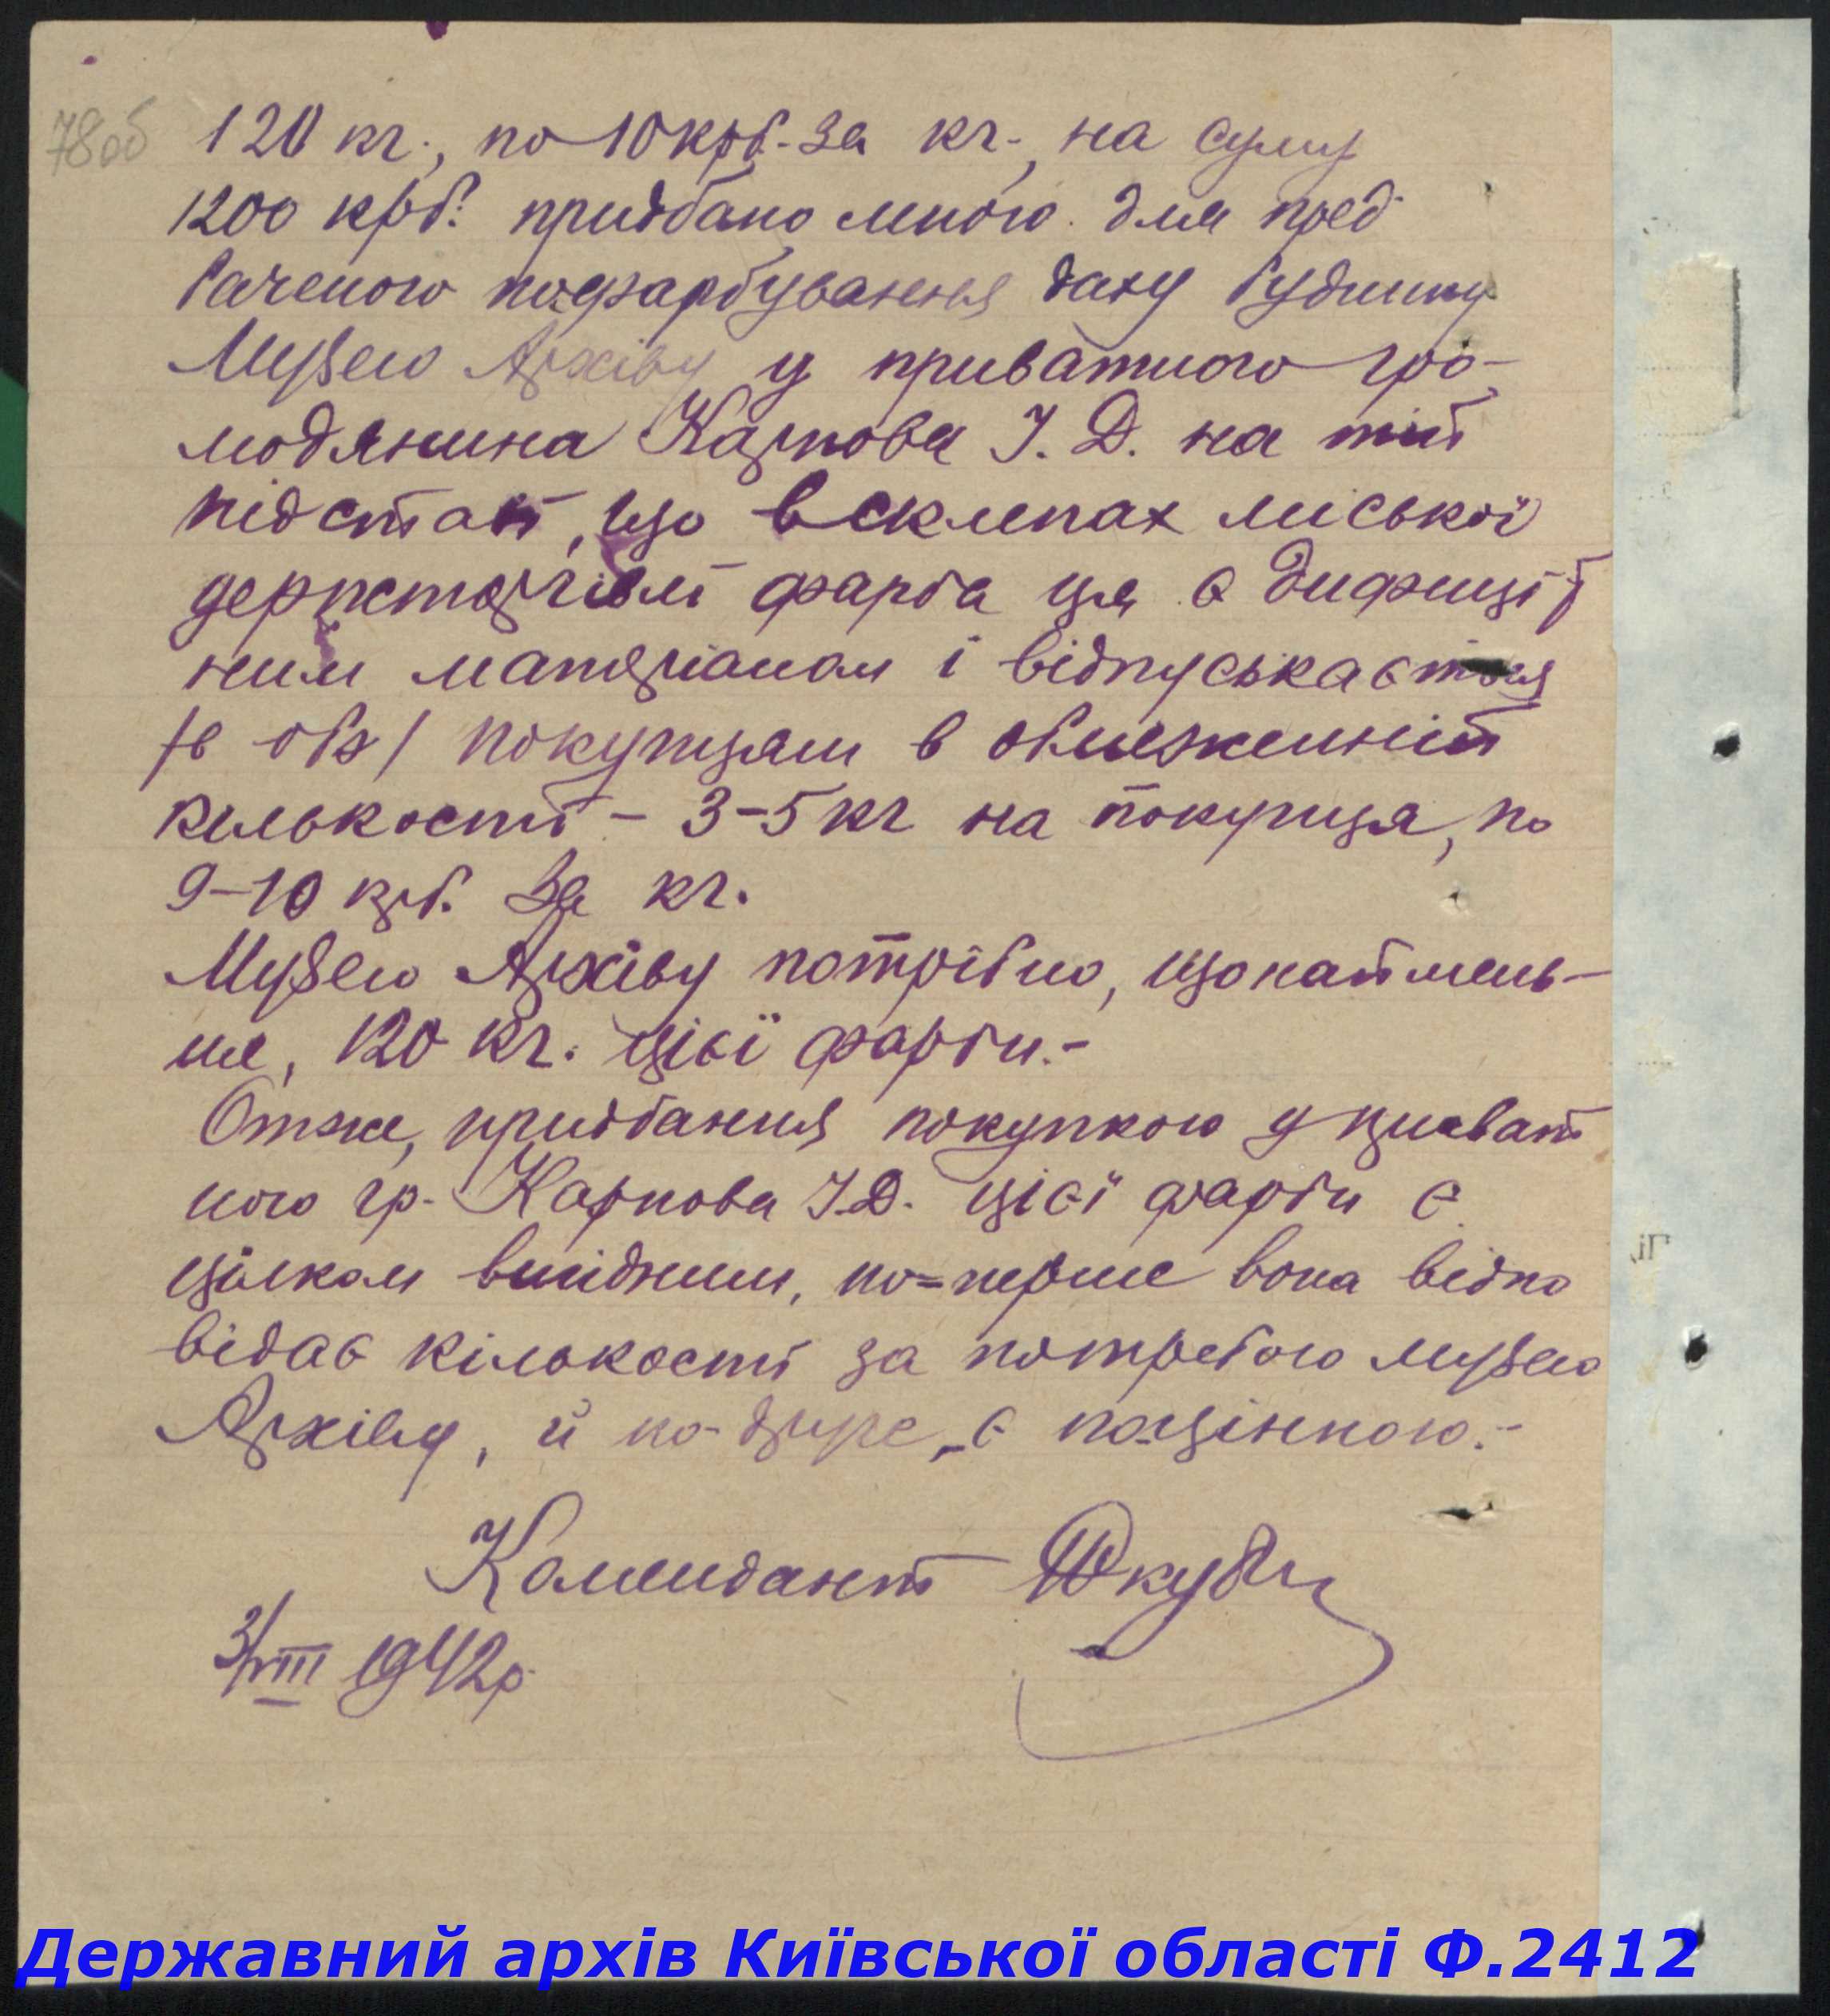 78об
120 кг., по 10 крб. за кг., на суму
1200 крб. придбано мною для пред
баченого пофарбування даху будинку
Музею Архіву у приватного гро-
модянина Карпова І. Д. на тій
підставі, що в склепах міської
держторгівлі фарба ця є дифицій
ним матеріалом і відпускається
покупцям в обмеженній
кількості – 3–5 кг на покупця, по
9–10 крб. за кг.
Музею Архіву потрібно, щонаймень-
ше, 120 кг. цієї фарби.-
Отже, придбання покупкою у приват
ного гр. Карпова І.Д. цієї фарби є
цілком вигідним, по=перше вона відпо
відає кількості за потребою Музею
Архіву, й по-друге, є поцінною.-
Комендант
3/VIII 1942р.
Державний архів Київської області Ф.2412